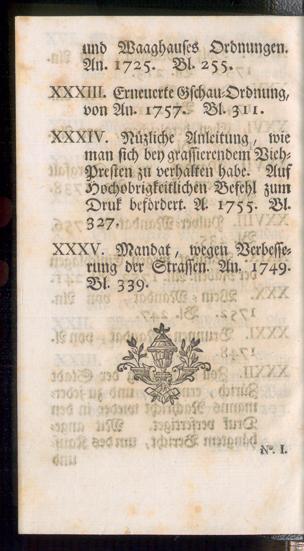 und Waaghauses Ordnungen.
An. 1725. Bl. 255.
XXXIII. Erneuerte Gschau-Ordnung,
von An. 1757. Bl. 311.
XXXIV. Nüzliche Anleitung, wie
man sich bey grassierendem Vieh-
Presten zu verhalten habe. Auf
Hochobrigkeitlichen Befehl zum
Druk befördert. A. 1755. Bl.
327.
XXXV. Mandat, wegen Verbesse-
rung der Strassen. An. 1749.
Bl. 339.
N°. I.